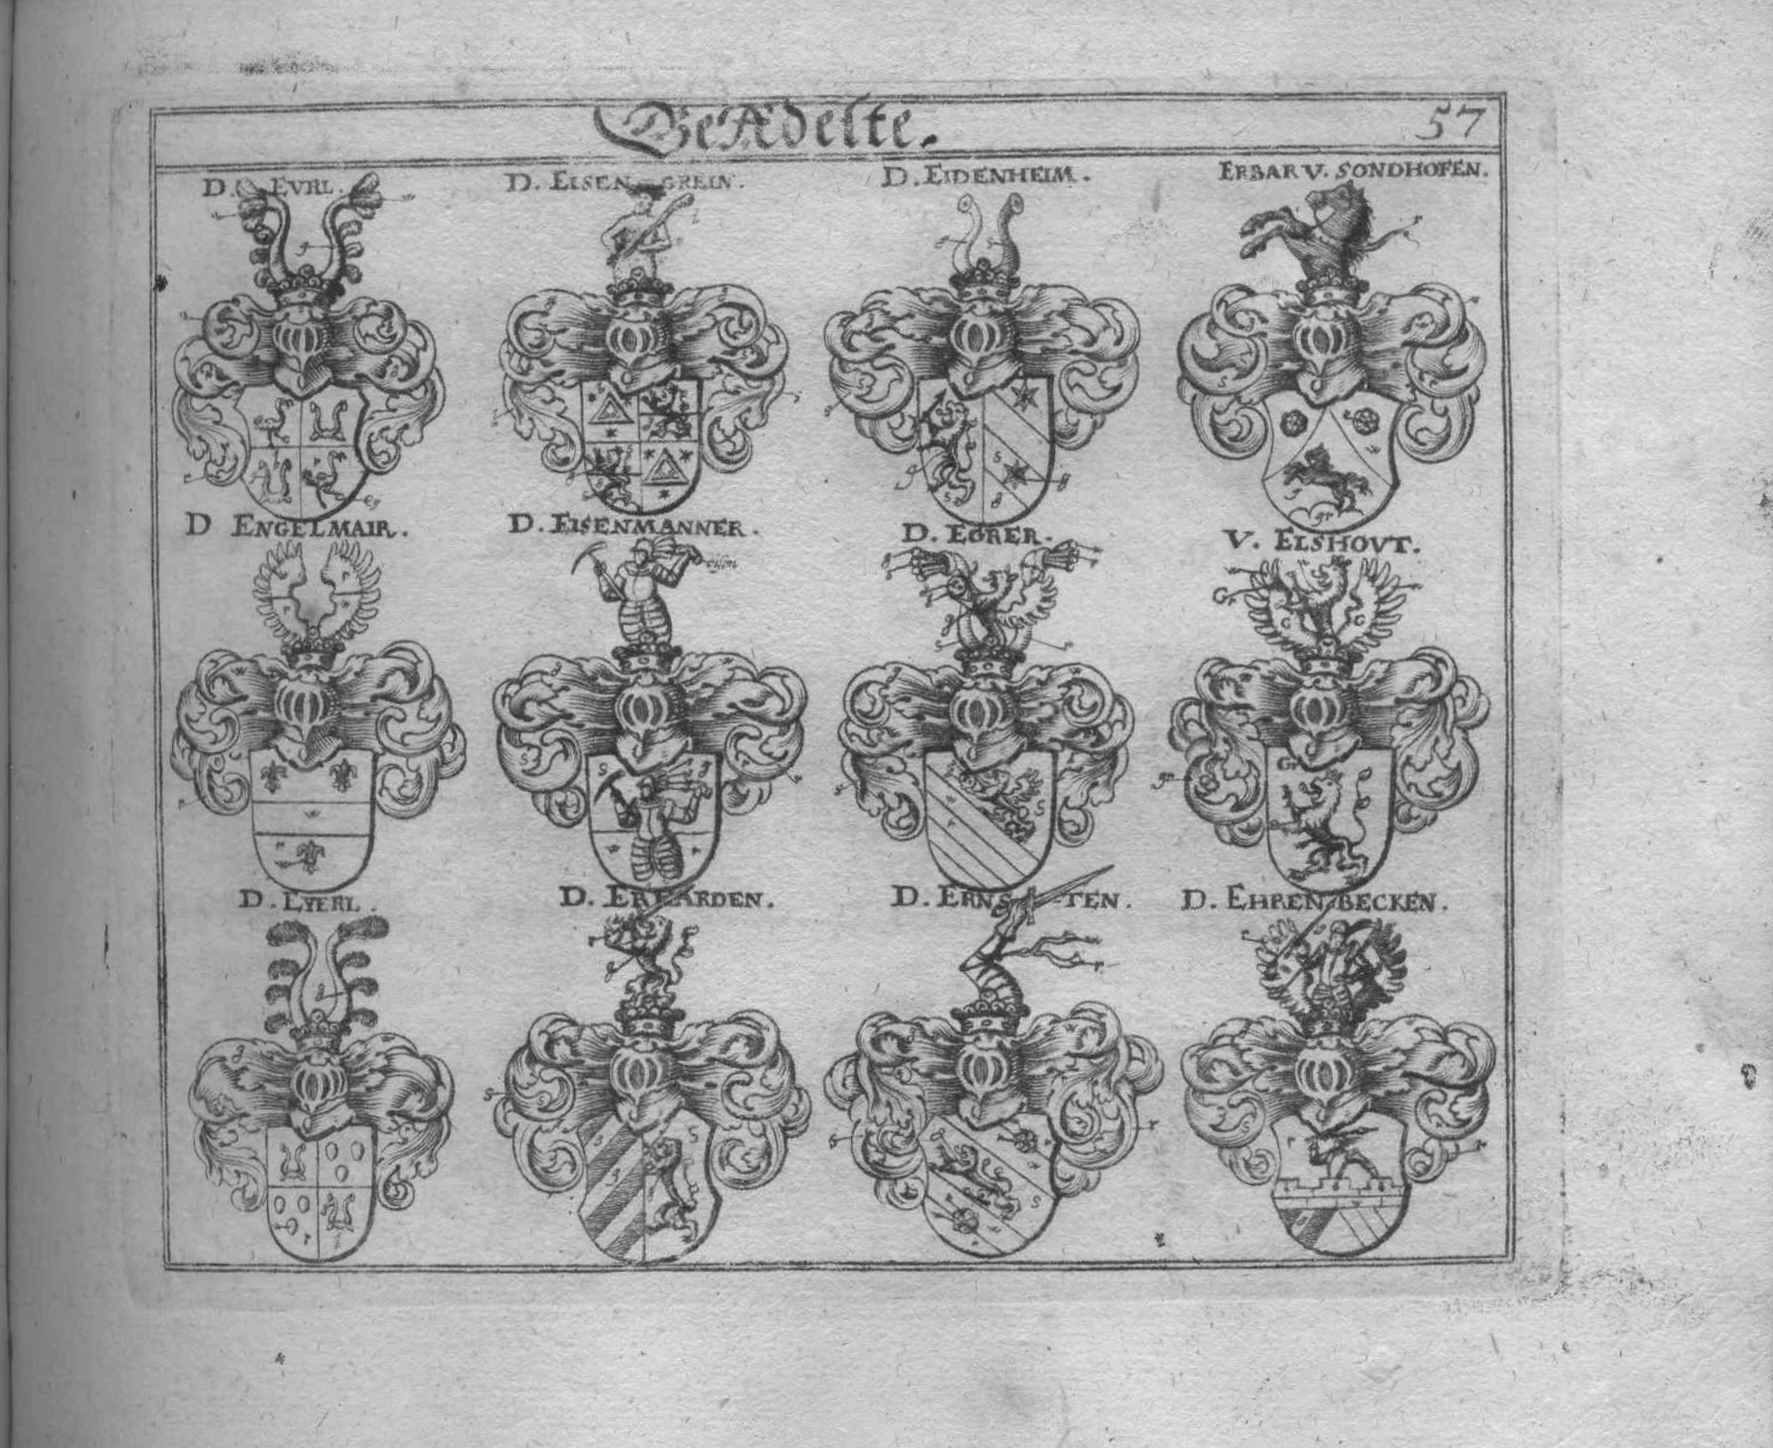 GeAdelte. 57
D. EVRL. D. EISEN-GREIN. D. EIDENHEIM. ERBAR V. SONDHOFEN.
D ENGELMAIR. D. EISENMANNER. D. EGRER. V. ELSHOVT.
D. EYERL. D. ERHARDEN. D. ERNS-TEN. D. EHRENBECKEN.